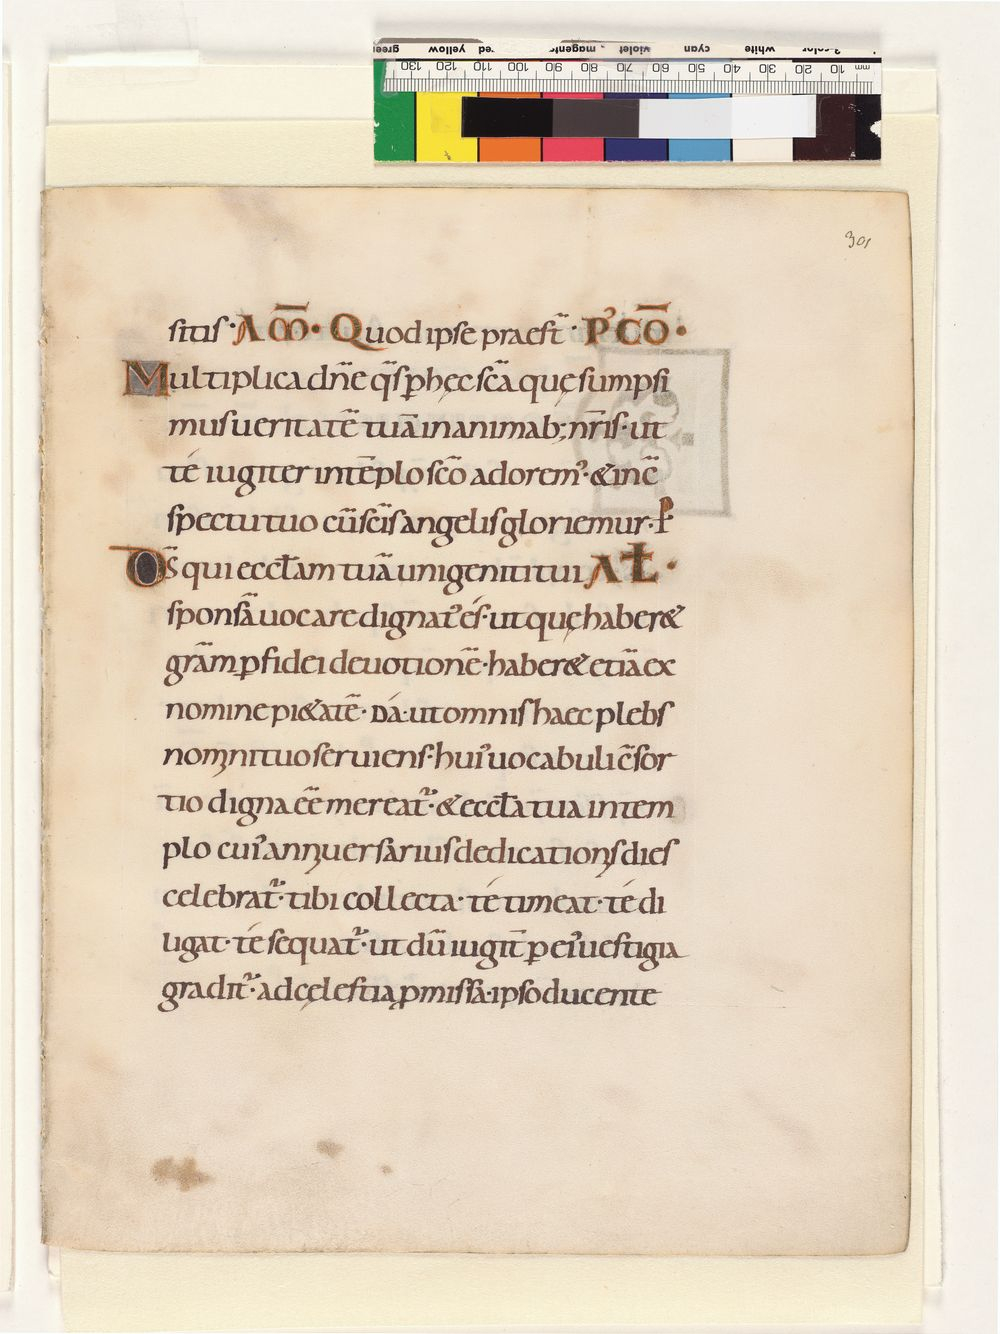 green yellow red magenta violet cyan white 3-color
130 120 110 100 90 80 70 60 50 40 30 20 10 mm
301
sitis· Am̄· Quod ipse praest̄· P᾽ CŌ·
Multiplica dn̄e q̄s p̱ hęc sc̄a quę sumpsi
mus ueritatē tuā in animab; nr̄is· ut
té iugiter in tēplo sc̄o adorem᾽· & in c̄
spectu tuo cū sc̄is angelis gloriemur· P
Ds̄ qui eccłam tuā unigeniti tui Ał·
sponsā uocare dignat᾽ és· ut quę haber&
gr̄am p̱ fidei deuotionē· haber& etiā ex
nomine pi&atē· DÁ· ut omnis haec plebs
nomini tuo seruiens· hui᾽ uocabuli c̄sor
tio digna ēē mereat᾽· & eccła tua in tem
plo cui᾽ anniuersarius dedicationis dies
celebrat᾽· tibi collecta· té timeat· té di
ligat· té sequat᾽· ut dū iugit̄ p̱ ei᾽ uestigia
gradit᾽· ad cęlestia p̱missa· ipso ducente